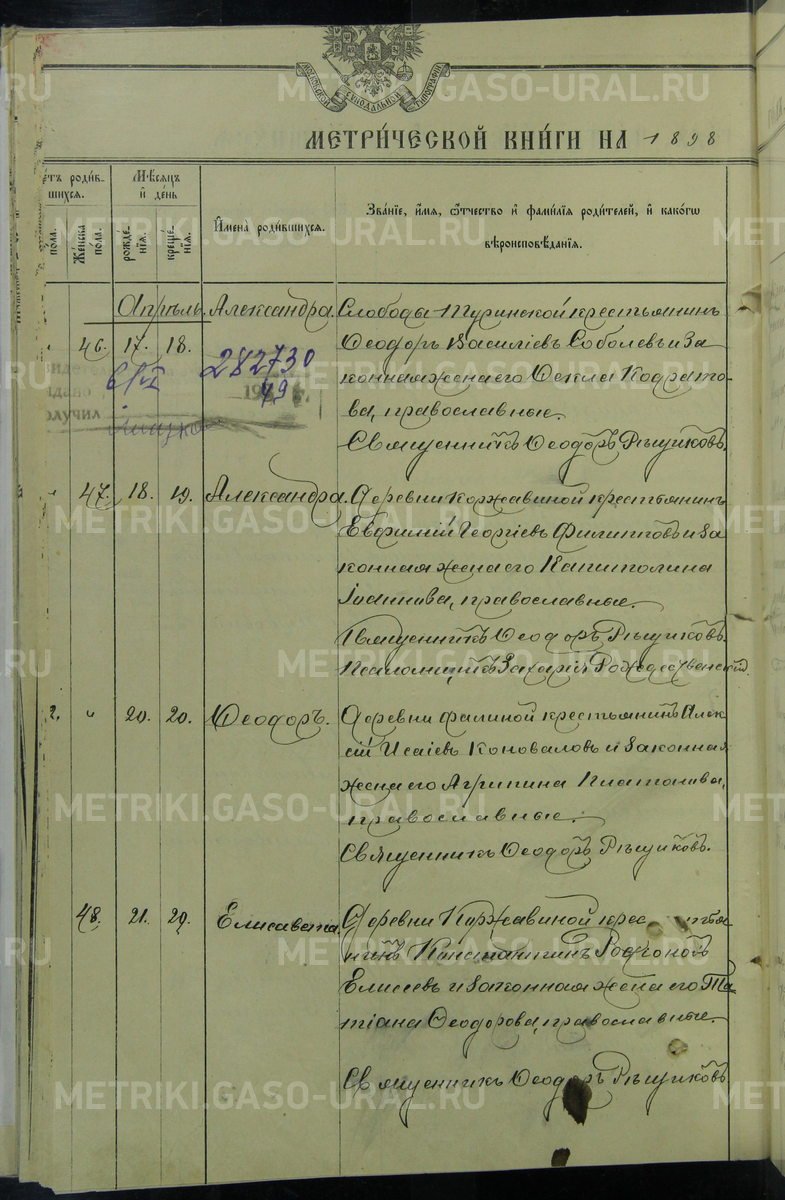 МОСКОВСКОЙ СѴНОДАЛЬНОЙ ТИПОГРАФІИ
METRIKI.GASO-URAL.RU
МЕТРИ́ЧЕСКОЙ КНИ́ГИ НА 1898
родив-
шихся.
Мѣсяцъ и день
пола.
Же́нска по́ла.
рожде́-нїя.
креще́-нїя.
Имена̀ роди́вшихся.
Зва́нїе, и́мя, ѻ҆́тчество и фами́лїя роди́телей, и како́гѡ
вѣроисповѣ́данїя.
Апрѣль. Александра. Слободы Туринской крестьянинъ
46. 17. 18. Ѳеодоръ Василіевъ Соболевъ и за
6/VI 282730 конная жена его Ѳекла Кодрато-
49 г. ва, православные.
получил
Священникъ Ѳеодоръ Рѣщиковъ.
47. 18. 19. Александра. Деревни Коржавиной крестьянинъ
Евфимій Георгіевъ Филипповъ и за
конная жена его Капитолина
Іоаннова, православные.
Священникъ Ѳеодоръ Рѣщиковъ.
Псаломщикъ Захарій Рождественскій.
„ 20. 20. Ѳеодоръ. Деревни Фалиной крестьянинъ Алек
сій Исаіевъ Коноваловъ и законная
жена его Агрипина Платонова,
православные.
Священникъ Ѳеодоръ Рѣщиковъ.
48. 21. 29. Елисавета. Деревни Коржавиной крес тья
нинъ Константинъ Родіоновъ
Елисеевъ и законная жена его Та
тіана Ѳеодорова, православные.
Священникъ Ѳеодоръ Рѣщиковъ